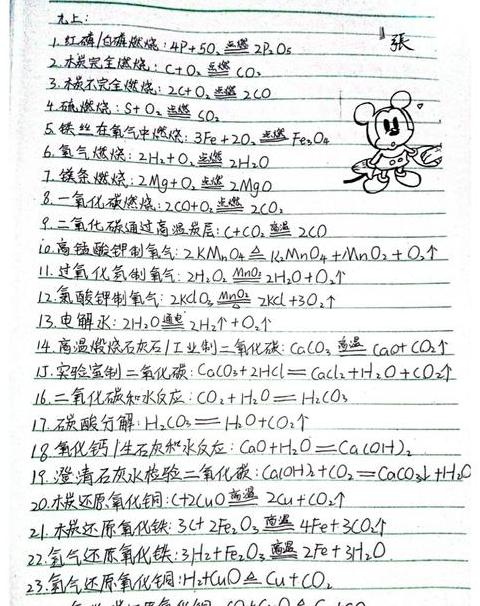 九上:
張
1.红磷/白磷燃烧: 4P+5O₂ 点燃 2P₂O₅
2.木炭完全燃烧: C+O₂ 点燃 CO₂
3.木炭不完全燃烧: 2C+O₂ 点燃 2CO
4.硫燃烧: S+O₂ 点燃 SO₂
5.铁丝在氧气中燃烧: 3Fe+2O₂ 点燃 Fe₃O₄
6.氢气燃烧: 2H₂+O₂ 点燃 2H₂O
7.镁条燃烧: 2Mg+O₂ 点燃 2MgO
8.一氧化碳燃烧: 2CO+O₂ 点燃 2CO₂
9.二氧化碳通过高温炭层: C+CO₂ 高温 2CO
10.高锰酸钾制氧气: 2KMnO₄ ≜ K₂MnO₄+MnO₂+O₂↑
11.过氧化氢制氧气: 2H₂O₂ MnO₂ 2H₂O+O₂↑
12.氯酸钾制氧气: 2KClO₃ MnO₂ △ 2KCl+3O₂↑
13.电解水: 2H₂O 通电 2H₂↑+O₂↑
14.高温煅烧石灰石/工业制二氧化碳: CaCO₃ 高温 CaO+CO₂↑
15.实验室制二氧化碳: CaCO₃+2HCl=CaCl₂+H₂O+CO₂↑
16.二氧化碳和水反应: CO₂+H₂O=H₂CO₃
17.碳酸分解: H₂CO₃=H₂O+CO₂↑
18.氧化钙/生石灰和水反应: CaO+H₂O=Ca(OH)₂
19.澄清石灰水检验二氧化碳: Ca(OH)₂+CO₂=CaCO₃↓+H₂O
20.木炭还原氧化铜: C+2CuO 高温 2Cu+CO₂↑
21.木炭还原氧化铁: 3C+2Fe₂O₃ 高温 4Fe+3CO₂↑
22.氢气还原氧化铁: 3H₂+Fe₂O₃ 高温 2Fe+3H₂O
23.氢气还原氧化铜: H₂+CuO ≜ Cu+CO₂